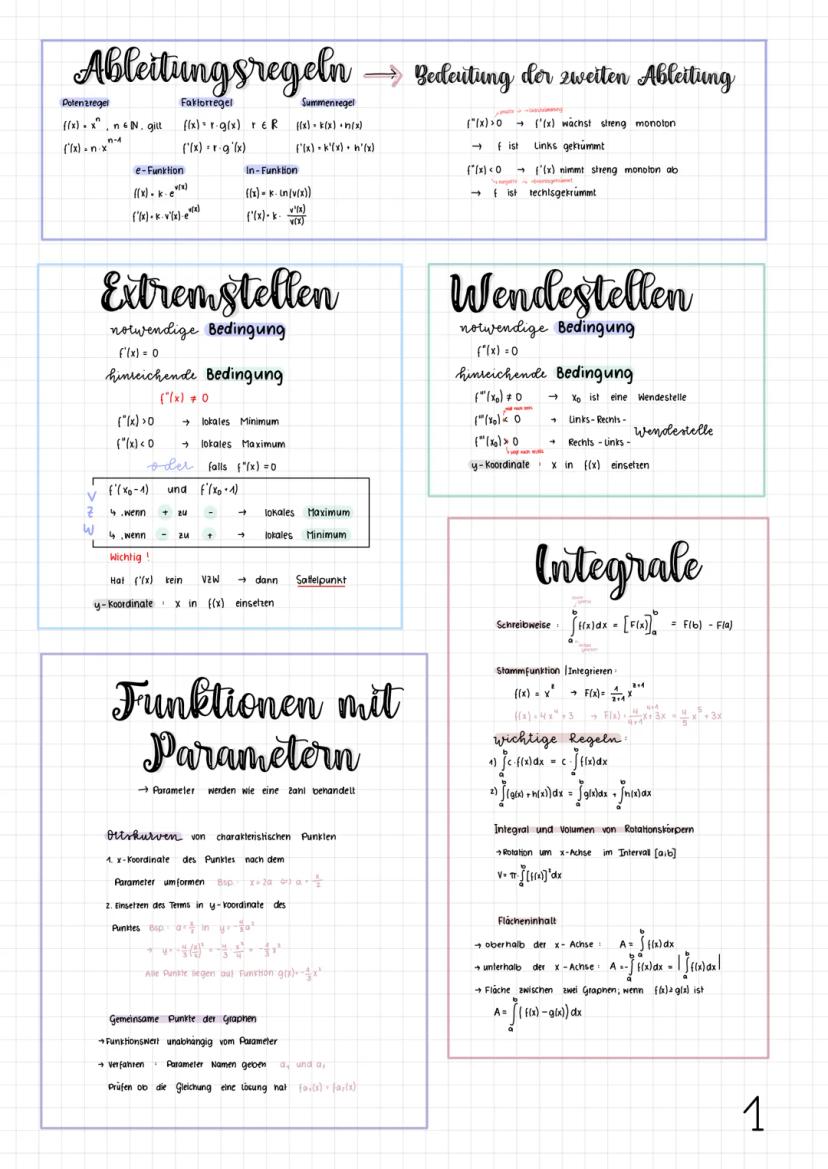 Ableitungsregeln → Bedeutung der zweiten Ableitung
Potenzregel Faktorregel Summenregel
f(x) = xⁿ, n ∈ ℕ, gilt f(x) = r · g(x) r ∈ ℝ f(x) = k(x) + h(x)
f'(x) = n · xⁿ⁻¹ f'(x) = r · g'(x) f'(x) = k'(x) + h'(x)
e-Funktion ln-Funktion
f(x) = k · e^v(x) f(x) = k · ln(v(x))
f'(x) = k · v'(x) · e^v(x) f'(x) = k · v'(x)/v(x)
f''(x) > 0 → f'(x) wächst streng monoton
→ f ist links gekrümmt
f''(x) < 0 → f'(x) nimmt streng monoton ab
→ f ist rechtsgekrümmt
Extremstellen
notwendige Bedingung
f'(x) = 0
hinreichende Bedingung
f''(x) ≠ 0
f''(x) > 0 → lokales Minimum
f''(x) < 0 → lokales Maximum
oder falls f''(x) = 0
VZW
f'(x₀-1) und f'(x₀+1)
↳ wenn + zu - → lokales Maximum
↳ wenn - zu + → lokales Minimum
Wichtig!
Hat f'(x) kein VZW → dann Sattelpunkt
y-Koordinate : x in f(x) einsetzen
Wendestellen
notwendige Bedingung
f''(x) = 0
hinreichende Bedingung
f'''(x₀) ≠ 0 → x₀ ist eine Wendestelle
f'''(x₀) < 0 → Links-Rechts-
f'''(x₀) > 0 → Rechts-Links- Wendestelle
y-Koordinate : x in f(x) einsetzen
Integrale
Schreibweise : ∫ₐᵇ f(x)dx = [F(x)]ₐᵇ = F(b) - F(a)
Stammfunktion | Integrieren :
f(x) = x^z → F(x) = 1/(z+1) x^(z+1)
f(x) = 4x⁴ + 3 → F(x) = 4/(4+1) x^(4+1) + 3x = 4/5 x⁵ + 3x
wichtige Regeln :
1) ∫ₐᵇ c · f(x)dx = c · ∫ₐᵇ f(x)dx
2) ∫ₐᵇ (g(x) + h(x))dx = ∫ₐᵇ g(x)dx + ∫ₐᵇ h(x)dx
Integral und Volumen von Rotationskörpern
→ Rotation um x-Achse im Intervall [a;b]
V = π · ∫ₐᵇ [f(x)]² dx
Flächeninhalt
→ oberhalb der x-Achse : A = ∫ₐᵇ f(x)dx
→ unterhalb der x-Achse : A = -∫ₐᵇ f(x)dx = |∫ₐᵇ f(x)dx|
→ Fläche zwischen zwei Graphen; wenn f(x) ≥ g(x) ist
A = ∫ₐᵇ (f(x) - g(x)) dx
Funktionen mit
Parametern
→ Parameter werden wie eine Zahl behandelt
Ortskurven von charakteristischen Punkten
1. x-Koordinate des Punktes nach dem
Parameter umformen Bsp.: x = 2a ⇔ a = x/2
2. Einsetzen des Terms in y-Koordinate des
Punktes Bsp.: a = x/2 in y = -4/3 a²
→ y = -4/3 (x/2)² = -4/3 · x²/4 = -1/3 x²
Alle Punkte liegen auf Funktion g(x) = -1/3 x²
Gemeinsame Punkte der Graphen
→ Funktionswert unabhängig vom Parameter
→ Verfahren : Parameter Namen geben a₁ und a₂
Prüfen ob die Gleichung eine Lösung hat fa₁(x) = fa₂(x)
1